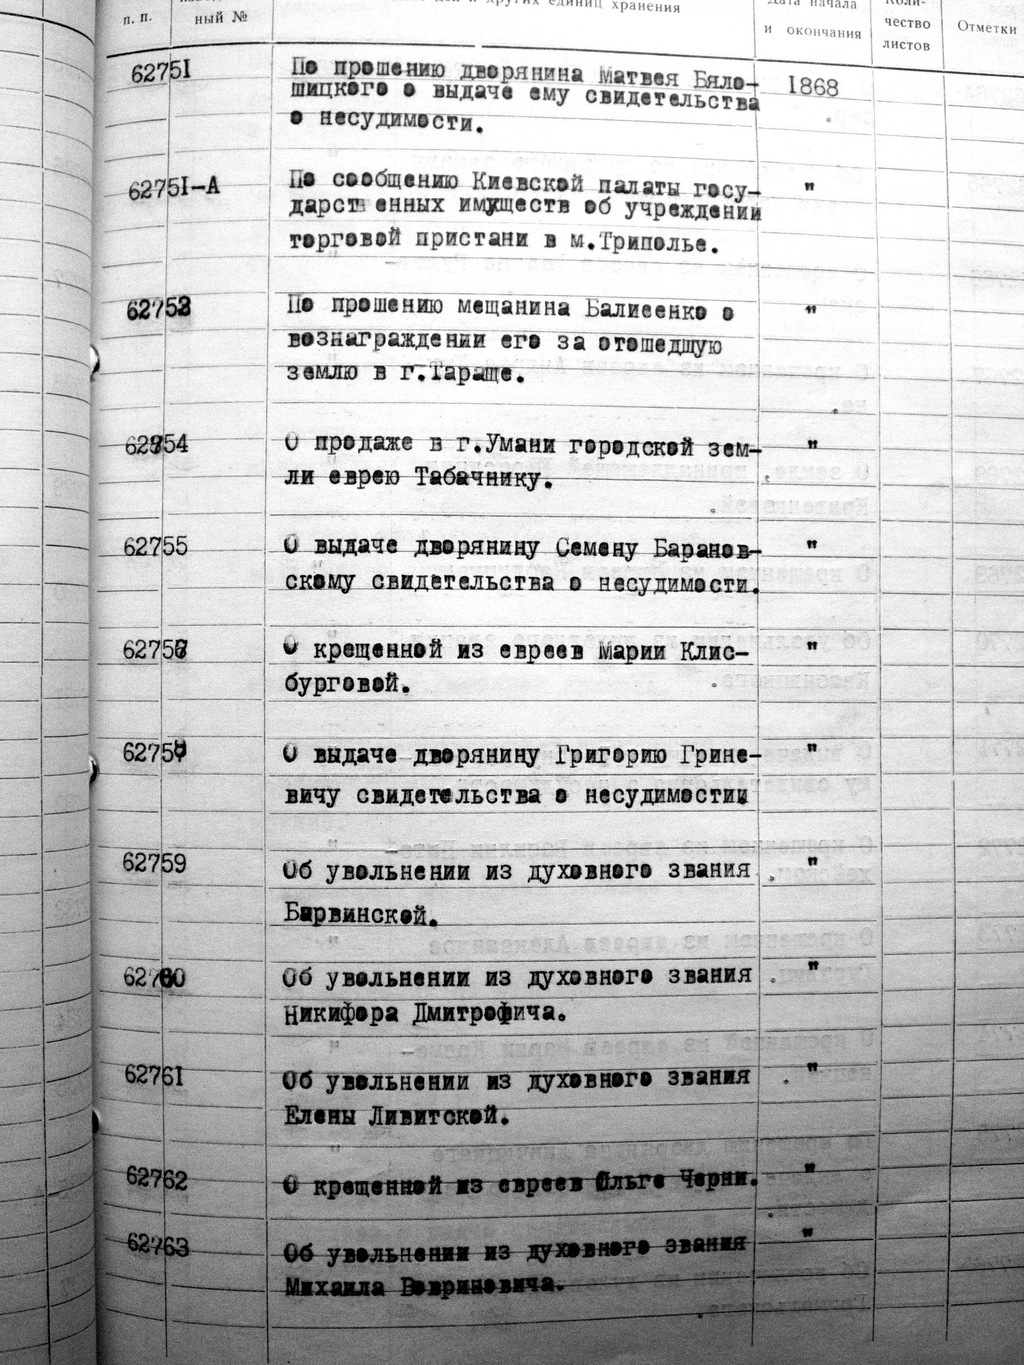 п. п.
ный №
и других единиц хранения
Дата начала
и окончания
Коли-
чество
листов
Отметки
6275I
По прошению дворянина Матвея Бяло-
шицкого о выдаче ему свидетельства
о несудимости.
1868
6275I-А
По сообщению Киевской палаты госу-
дарственных имуществ об учреждении
торговой пристани в м.Триполье.
"
По прошению мещанина Балиеенко о
вознаграждении его за отошедшую
землю в г.Тараще.
"
О продаже в г.Умани городской зем-
ли еврею Табачнику.
"
62755
О выдаче дворянину Семену Баранов-
скому свидетельства о несудимости.
"
О крещенной из евреев Марии Клис-
бурговой.
"
О выдаче дворянину Григорию Грине-
вичу свидетельства о несудимости
"
62759
Об увольнении из духовного звания
Барвинской.
"
62760
Об увольнении из духовного звания
Никифора Дмитрофича.
"
6276I
Об увольнении из духовного звания
Елены Ливитской.
"
62762
О крещенной из евреев Ольге Черни.
"
62763
Об увольнении из духовного звания
Михаила
"